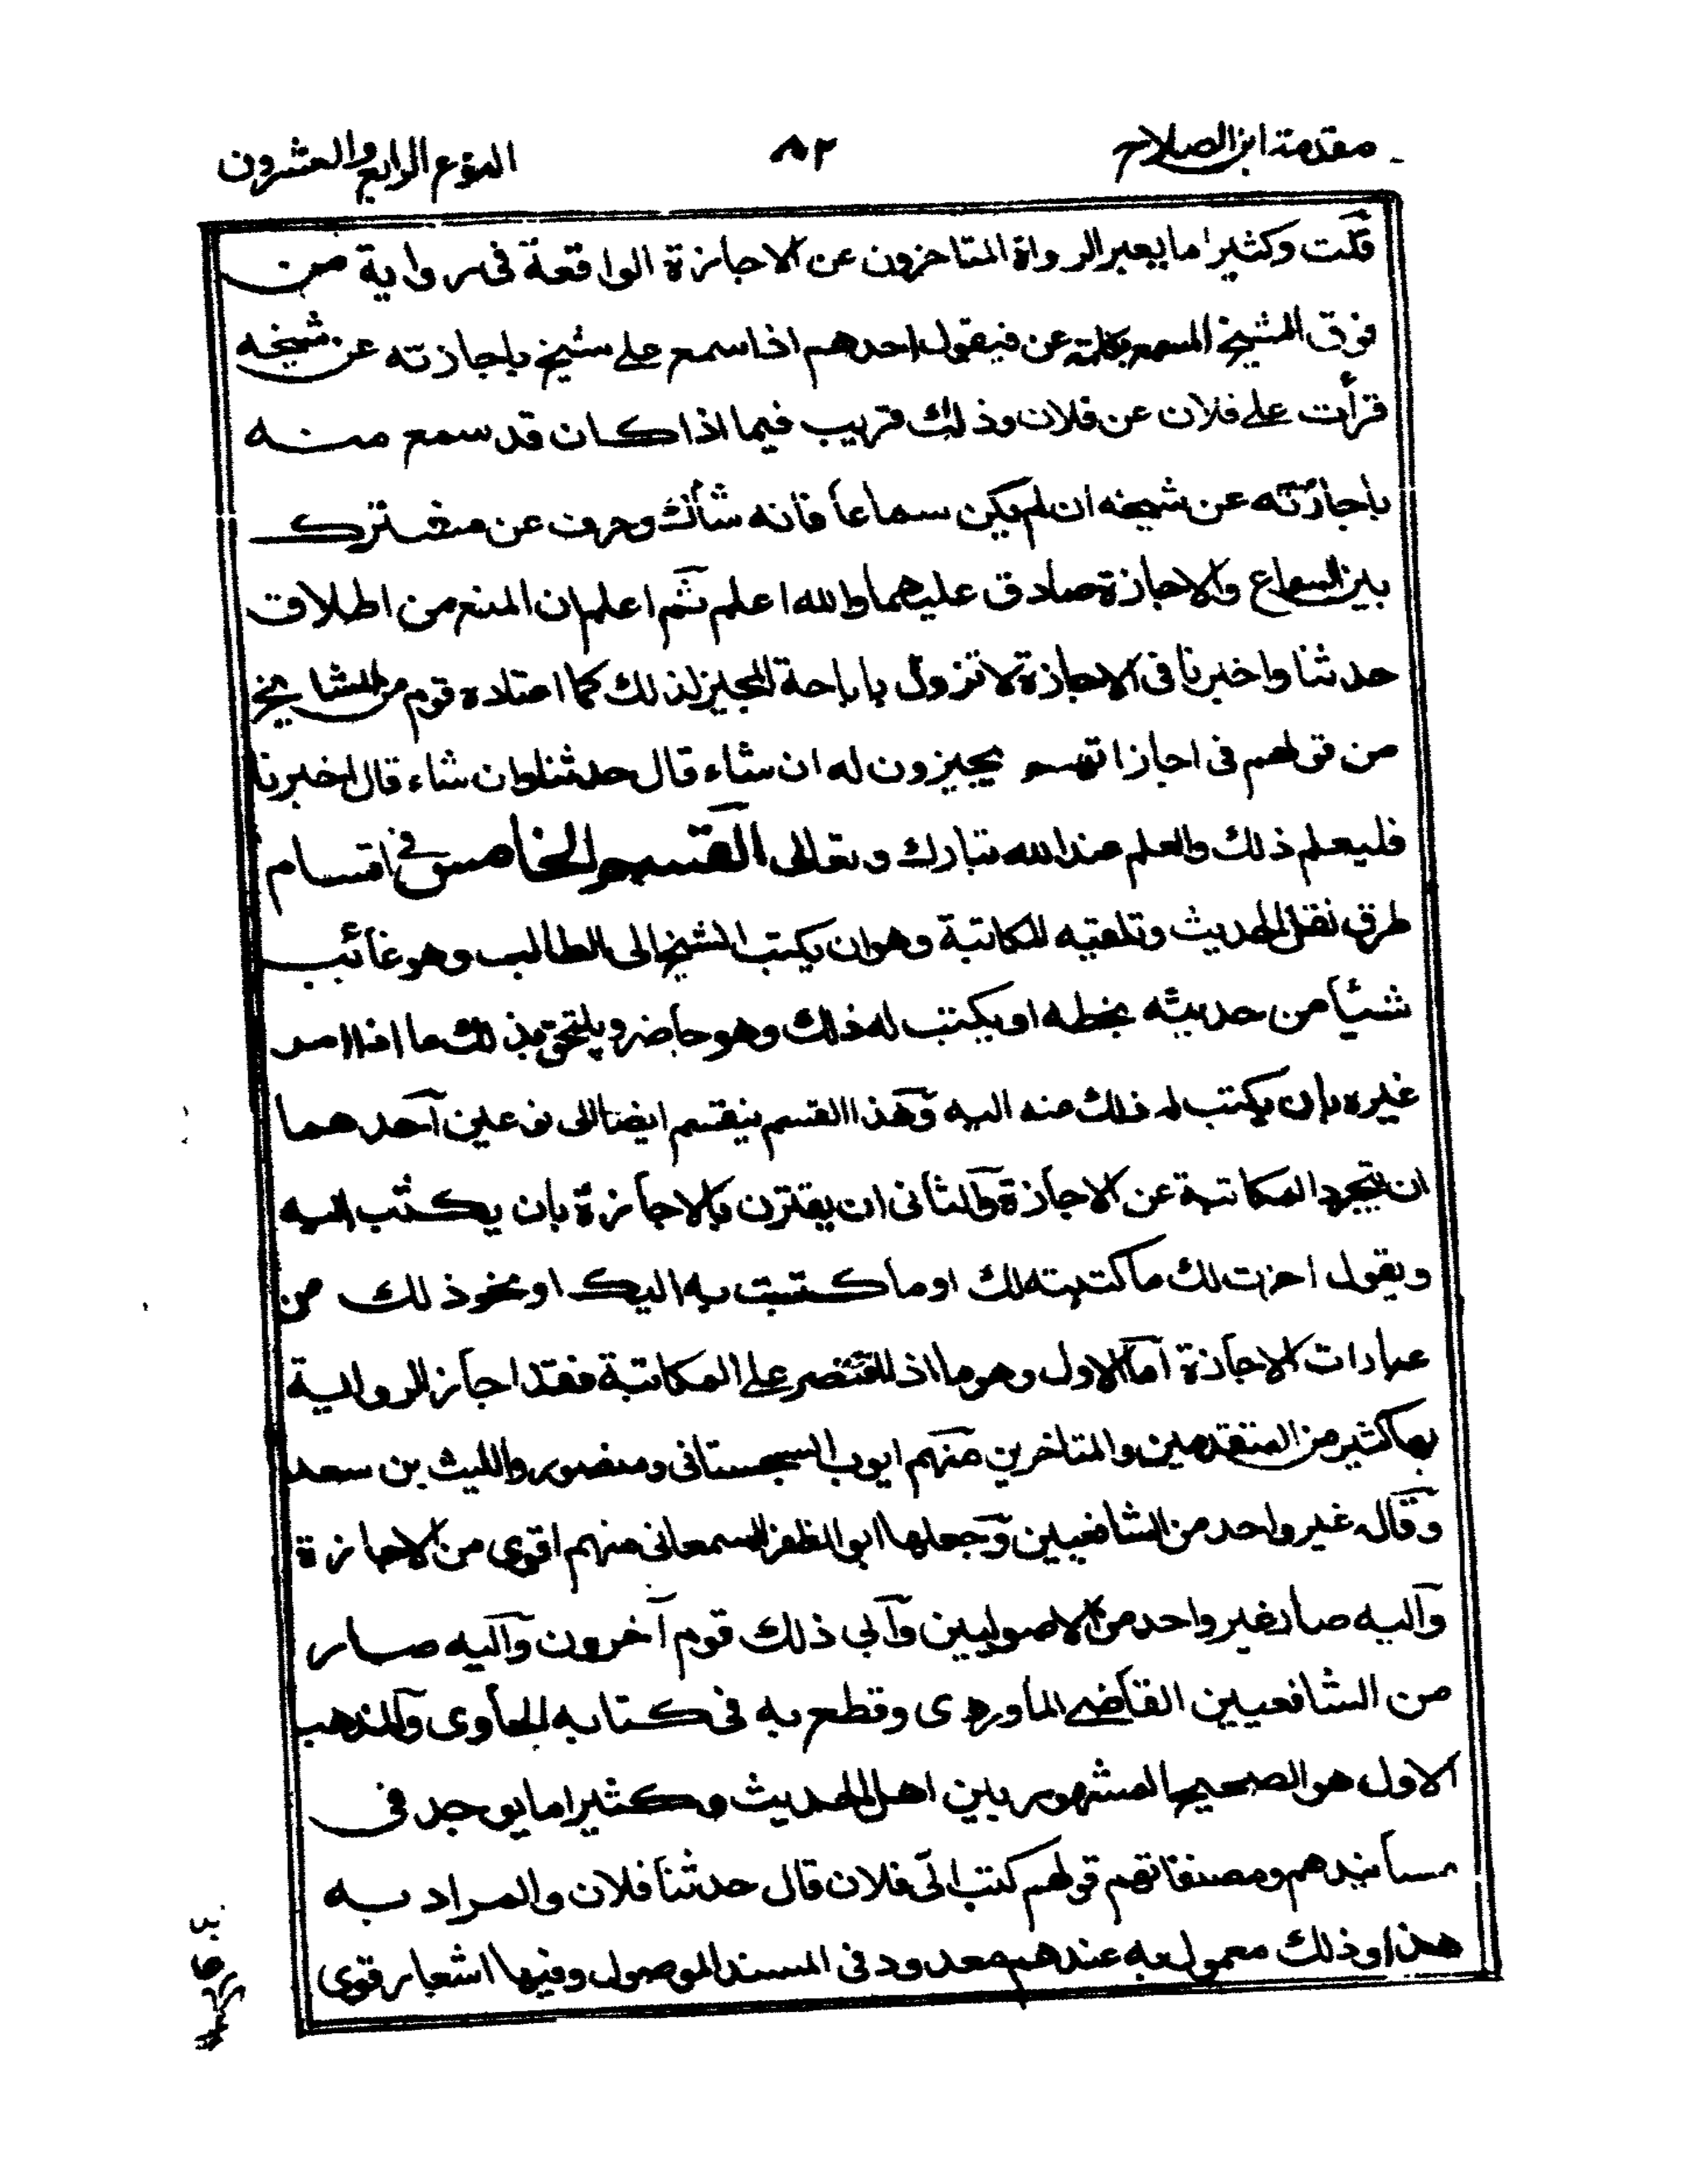 مقدمة ابن الصلاح ٨٢ النوع الرابع والعشرون
قلت وكثيرا ما يعبر الرواة المتاخرون عن الاجازة الواقعة فى رواية من
فوق الشيخ المسمع بكلمة عن فيقول احدهم اذا سمع على شيخ باجازته عن شيخه
قرأت على فلان عن فلان وذلك قريب فيما اذا كان قد سمع منه
باجازته عن شيخه ان لم يكن سماعا فانه شاك وحرف عن مشترك
بين السماع والاجازة صادق عليهما والله اعلم ثم اعلم ان المنع من اطلاق
حدثنا واخبرنا فى الاجازة لا تزول باباحة المجيز لذلك كما اعتاده قوم من المشايخ
من قولهم فى اجازاتهم يجيزون له ان شاء قال حدثنا وان شاء قال اخبرنا
فليعلم ذلك والعلم عند الله تبارك وتعالى القسم الخامس فى اقسام
طرق نقل الحديث وتلقيه المكاتبة وهو ان يكتب الشيخ الى الطالب وهو غائب
شيئا من حديثه بخطه او يكتب له ذلك وهو حاضر ويلتحق بذلك ما اذا امر
غيره بان يكتب له ذلك عنه اليه وهذا القسم ينقسم ايضا الى نوعين احدهما
ان يتجرد المكاتبة عن الاجازة والثانى ان يقترن بالاجازة بان يكتب اليه
ويقول اجزت لك ما كتبته لك او ما كتبت به اليك او نحو ذلك من
عبارات الاجازة اما الاول وهو ما اذا اقتصر على المكاتبة فقد اجاز الرواية
بها كثير من المتقدمين والمتاخرين منهم ايوب السجستانى ومنصور والليث بن سعد
وقاله غير واحد من الشافعيين وجعلها ابو المظفر السمعانى منهم اقوى من الاجازة
واليه صار غير واحد من الاصوليين وابى ذلك قوم آخرون واليه صار
من الشافعيين القاضى الماوردى وقطع به فى كتابه الحاوى والمذهب
الاول هو الصحيح المشهور بين اهل الحديث وكثيرا ما يوجد فى
مسانيدهم ومصنفاتهم قولهم كتب الى فلان قال حدثنا فلان والمراد به
هذا وذلك معمول به عندهم معدود فى المسند الموصول وفيها اشعار قوى